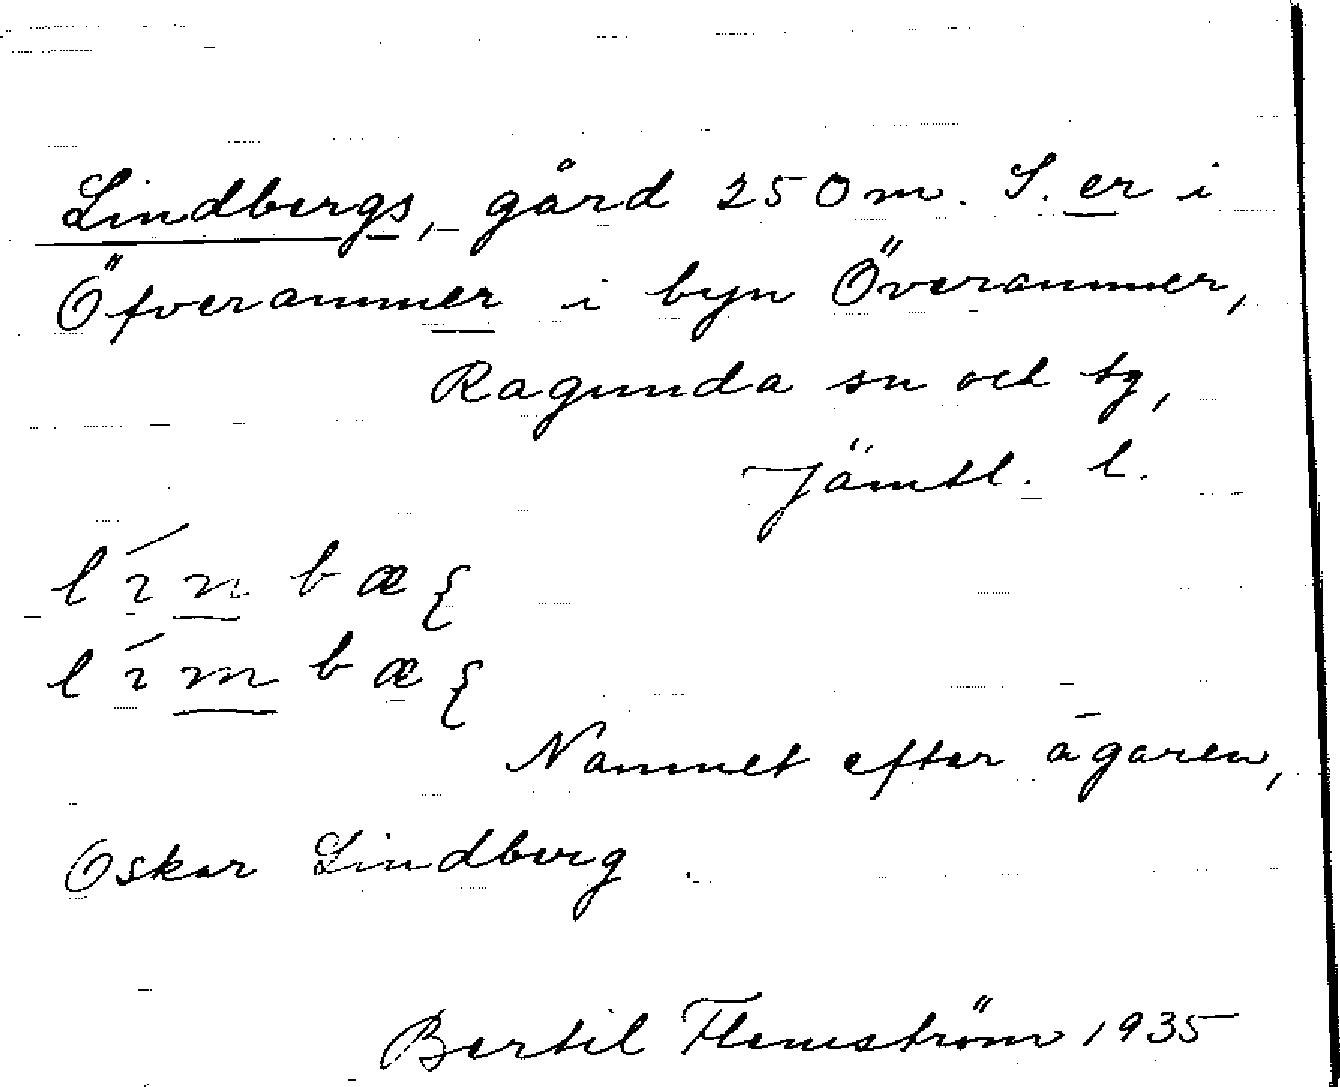 Lindbergs, gård 250 m. S. er i
Öfverammer i byn Överammer,
Ragunda sn och tg,
Jämtl. l.
Namnet efter ägaren,
Oskar Lindberg.
Bertil Flemström 1935